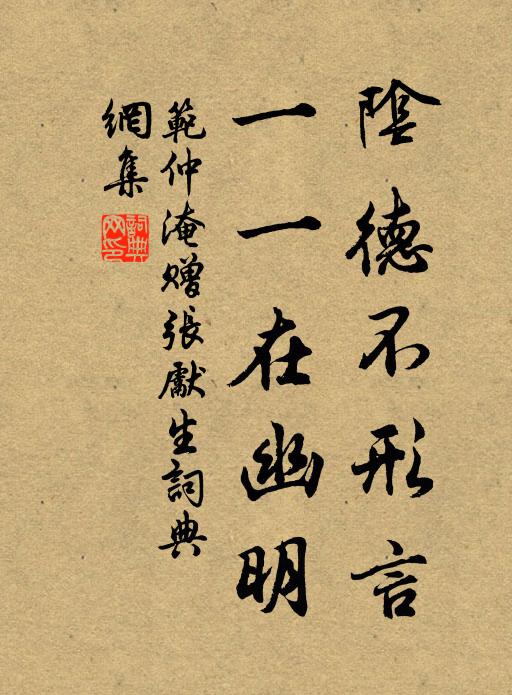 陰德不形言
一一在幽明
範仲淹贈張獻生詞典
網集
詞典網印